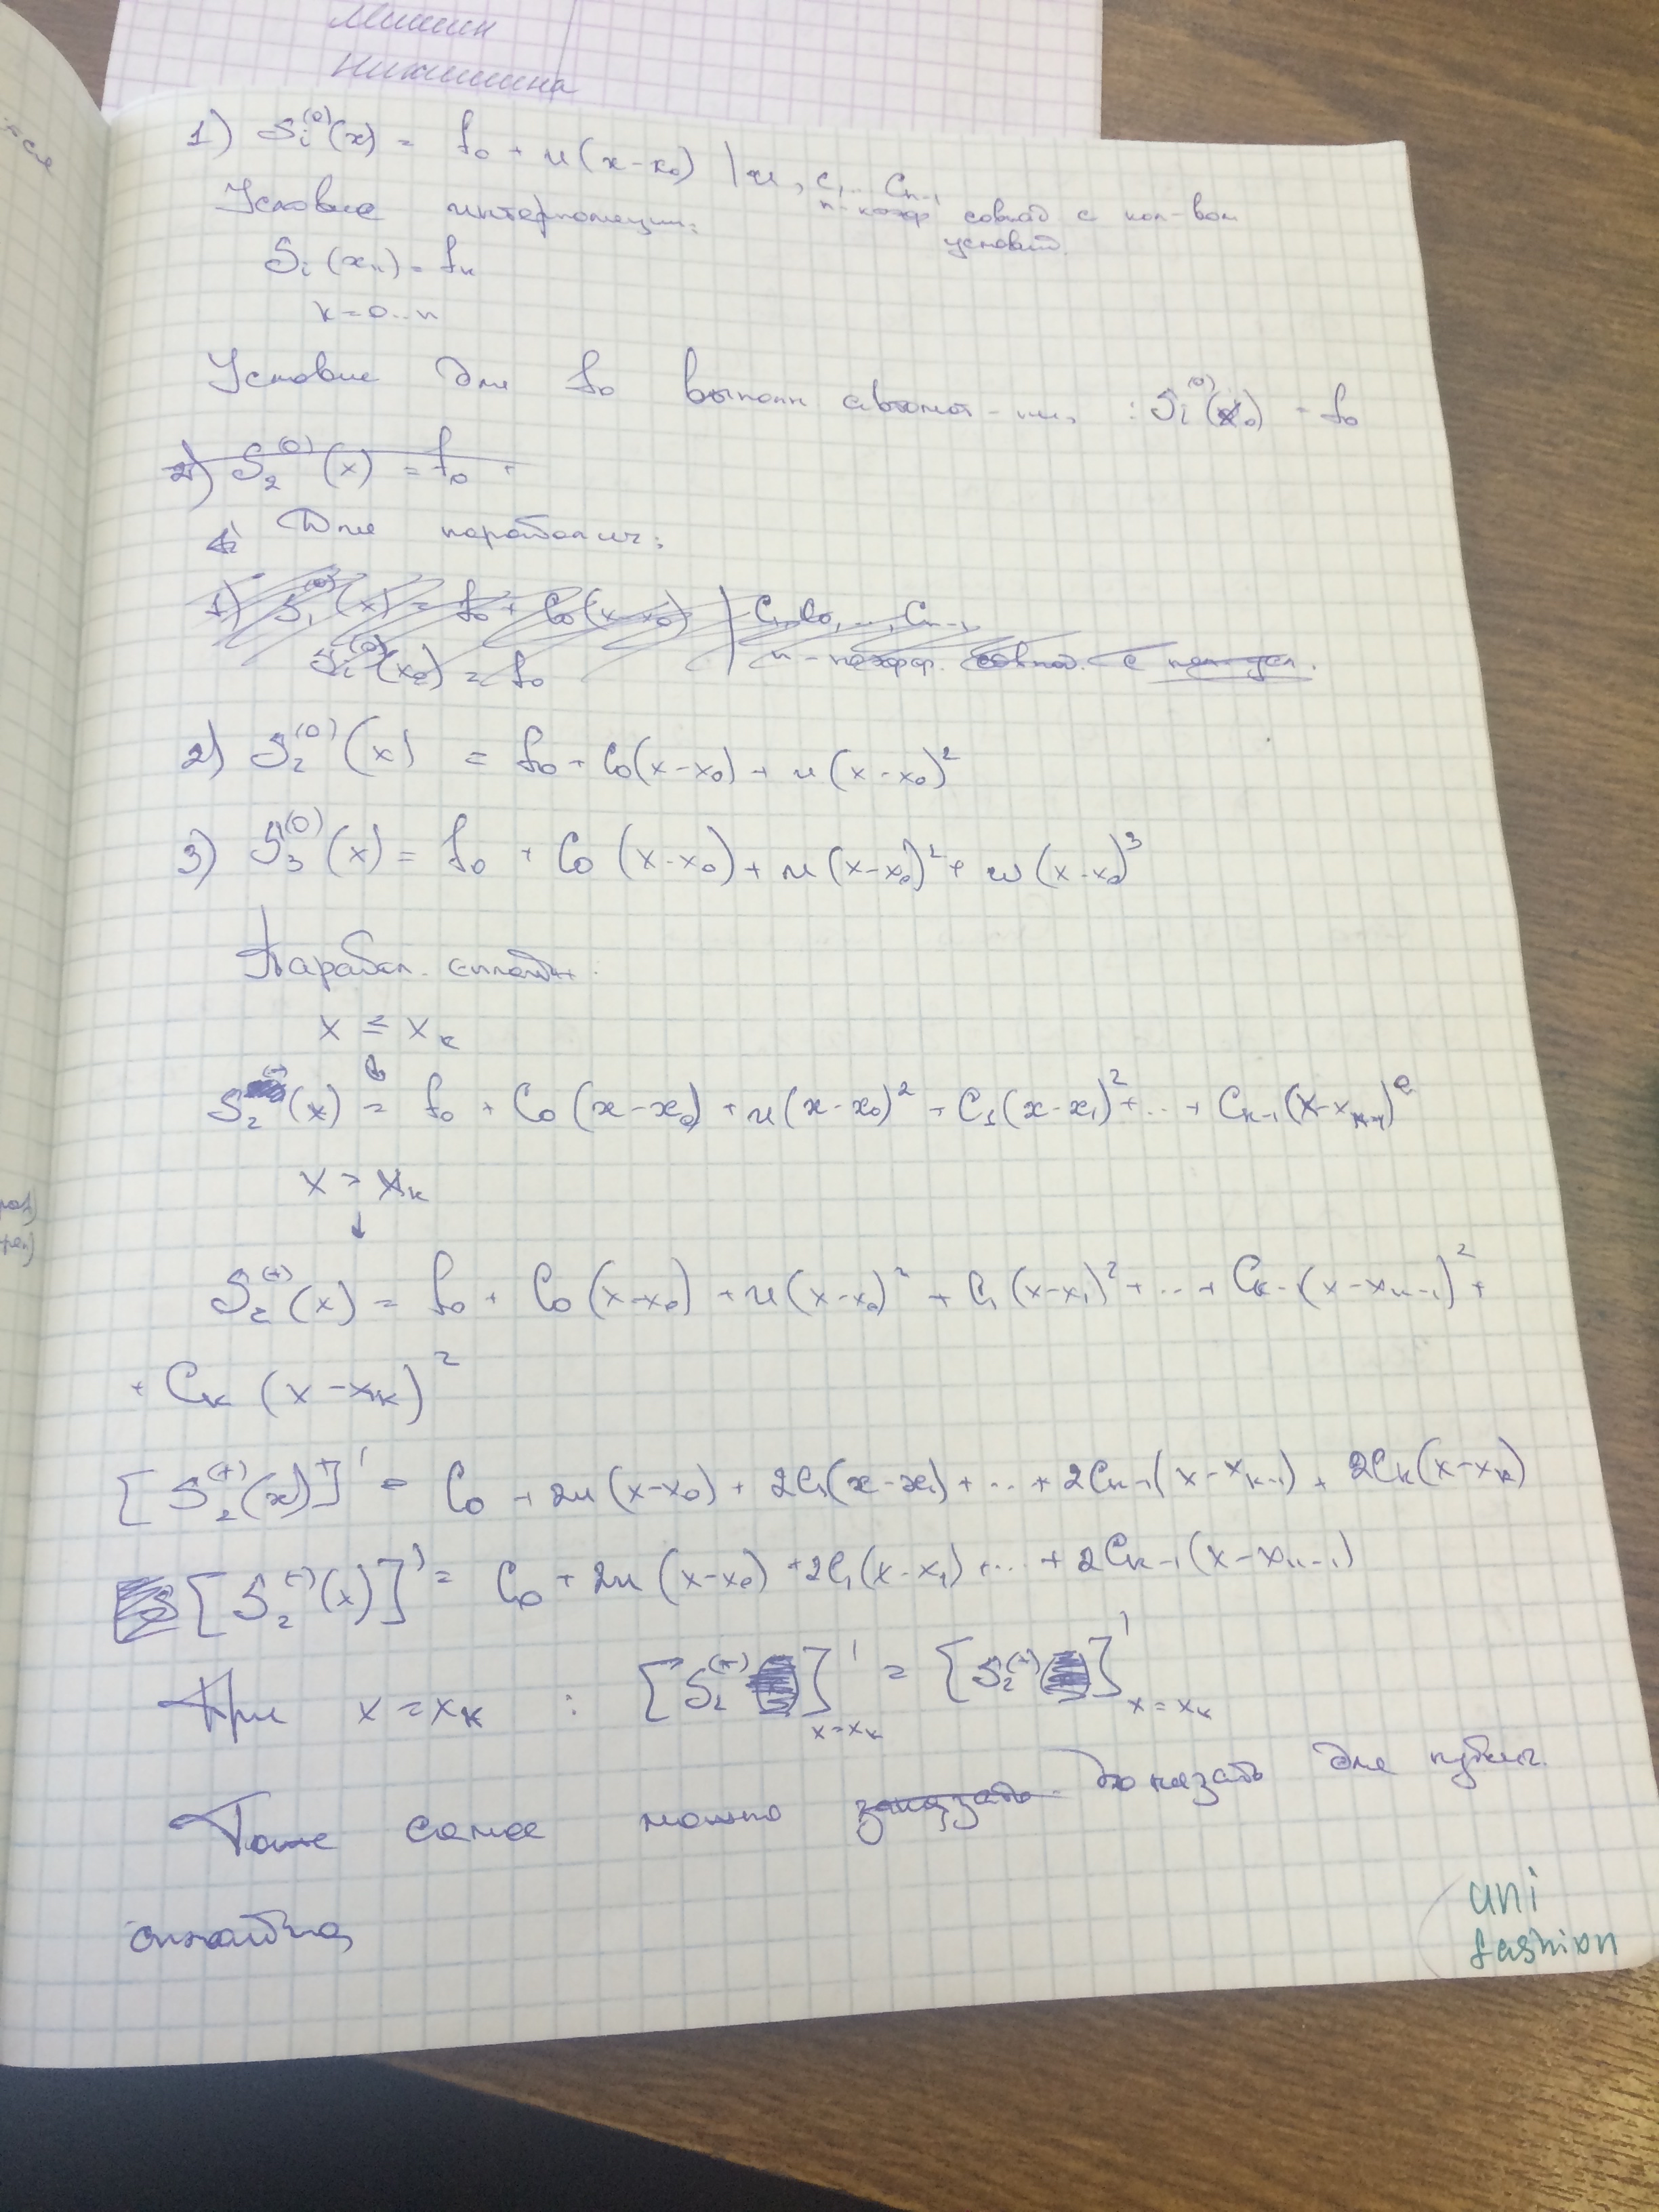 Мишин
Никишина
1) Sᵢ⁽⁰⁾(x) = f₀ + u(x-x₀) | u, c₁... Cₙ₋₁
n-коэф совпад с кол-вом
условий.
Условие интерполяции:
Sᵢ(xₖ) = fₖ
k=0..n
Условие для f₀ выполн автомат-ки, : Sᵢ⁽⁰⁾(x₀) = f₀
2) S₂⁽⁰⁾(x) = f₀ +
Для параболич:
1) S₁⁽⁰⁾(x) = f₀ + C₀(x-x₀) | C₁, C₀, ..., Cₙ₋₁
Sᵢ⁽⁰⁾(x₀) = f₀ n-коэфф. совпад. с
2) S₂⁽⁰⁾(x) = f₀ + C₀(x-x₀) + u(x-x₀)²
3) S₃⁽⁰⁾(x) = f₀ + C₀(x-x₀) + u(x-x₀)² + w(x-x₀)³
Парабол. сплайн:
x ≤ xₖ
S₂⁽⁻⁾(x) = f₀ + C₀(x-x₀) + u(x-x₀)² + C₁(x-x₁)² + ... + Cₖ₋₁(x-xₖ₋₁)²
x > xₖ
↓
S₂⁽⁺⁾(x) = f₀ + C₀(x-x₀) + u(x-x₀)² + C₁(x-x₁)² + ... + Cₖ₋₁(x-xₖ₋₁)² +
+ Cₖ(x-xₖ)²
[S₂⁽⁺⁾(x)]' = C₀ + 2u(x-x₀) + 2C₁(x-x₁) + ... + 2Cₖ₋₁(x-xₖ₋₁) + 2Cₖ(x-xₖ)
[S₂⁽⁻⁾(x)]' = C₀ + 2u(x-x₀) + 2C₁(x-x₁) + ... + 2Cₖ₋₁(x-xₖ₋₁)
При x=xₖ : [S₂⁽⁺⁾]'ₓ₌ₓₖ = [S₂⁽⁻⁾]'ₓ₌ₓₖ
Тоже самое можно доказать для кубич.
сплайна
uni
fashion